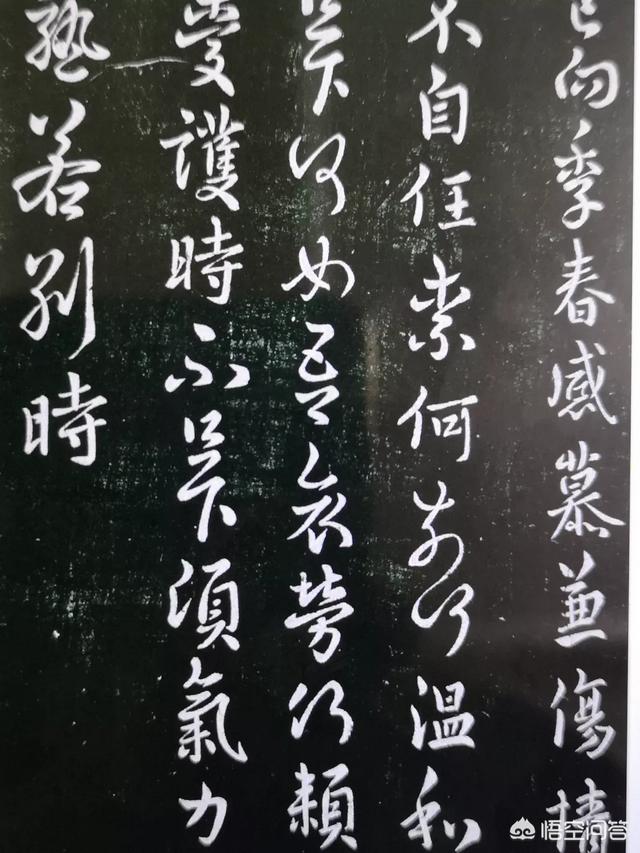 已向季春感慕兼傷情
不自任柰何柰何溫和
足下何如吾哀勞何頼
愛護時不足下須氣力
孰若別時
悟空问答